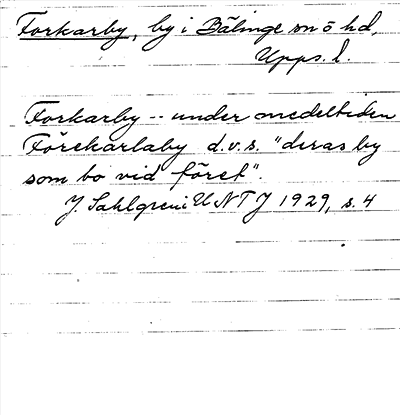 Forkarby, by i Bälinge sn ö hd,
Upps. l.
Forkarby -- under medeltiden
Förekarlaby d.v.s. "deras by
som bo vid föret".
J. Sahlgren i UNTJ 1929, s. 4